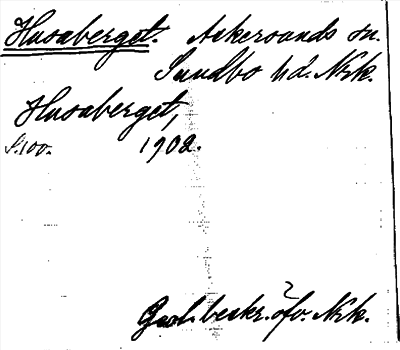 Husaberget. Askersunds sn.
Sundbo hd. Nrk.
Husaberget,
S. 100. 1902.
Geol. beskr. öfv. Nrk.